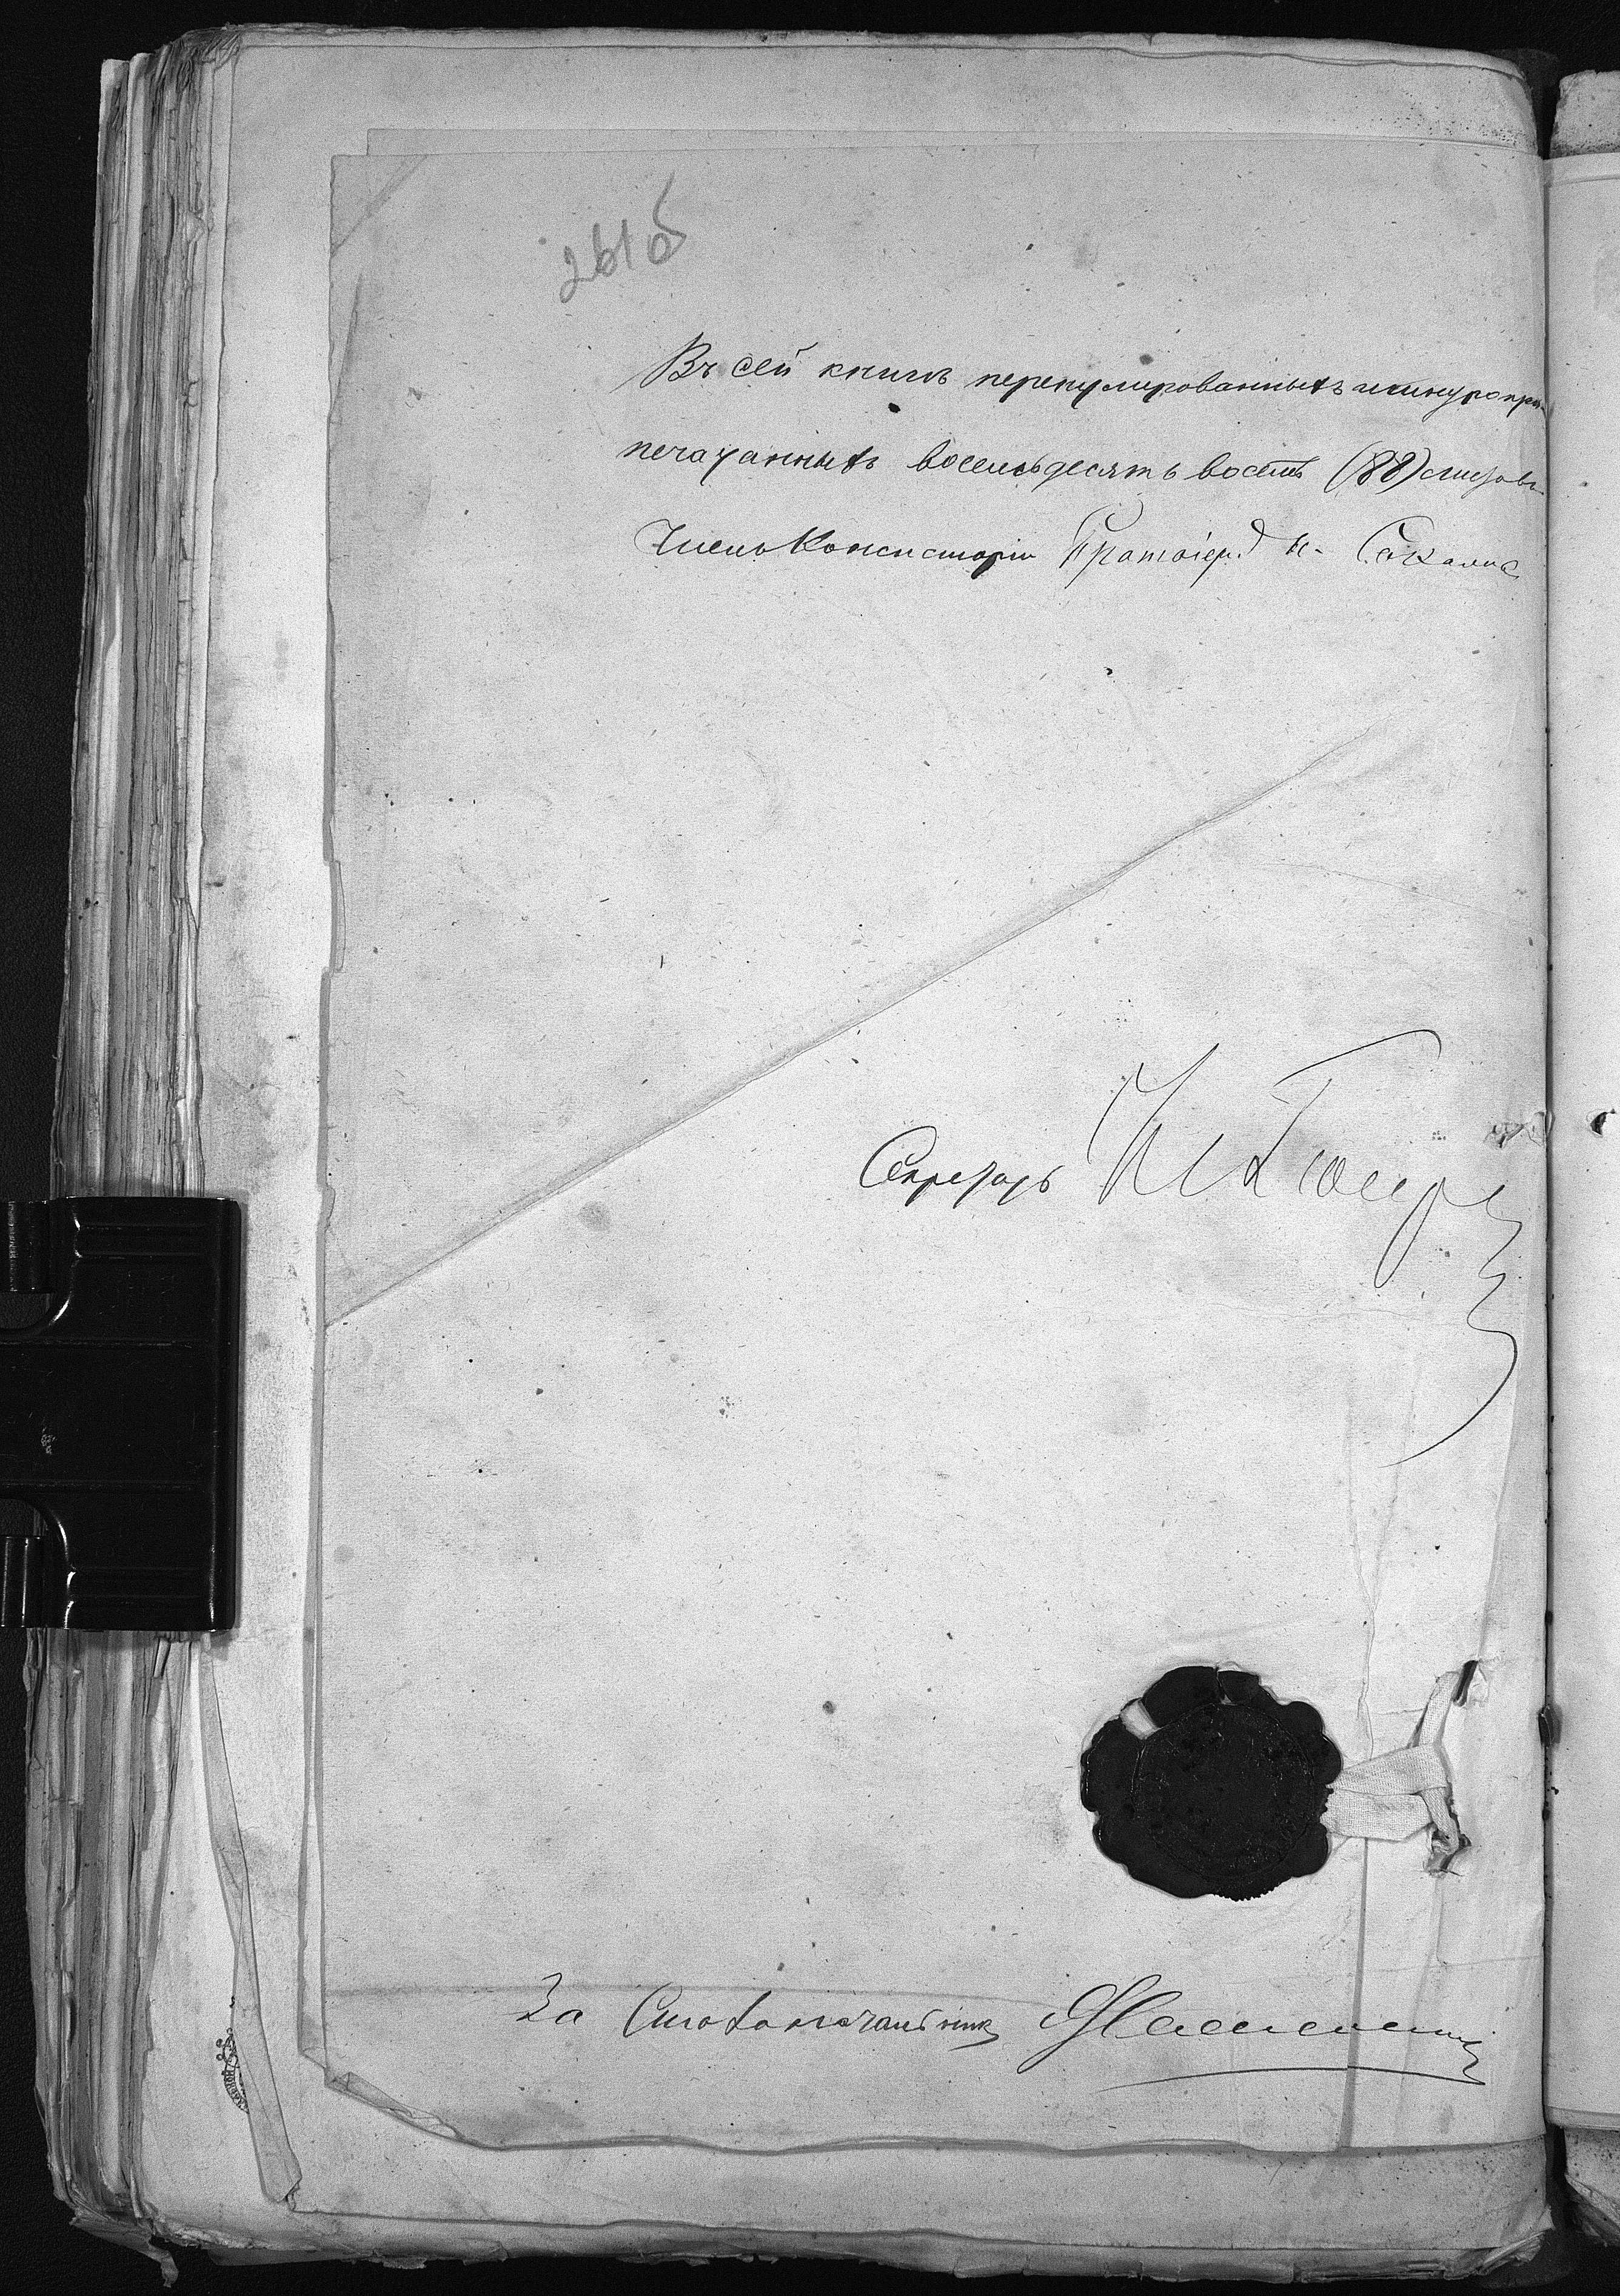 261об
Въ сей книгѣ перенумерованныхъ и шнуропри-
печатанныхъ восемьдесятъ восемь (88) листовъ
Членъ Консисторіи Протоіер.
Секретарь
За Столоначальника